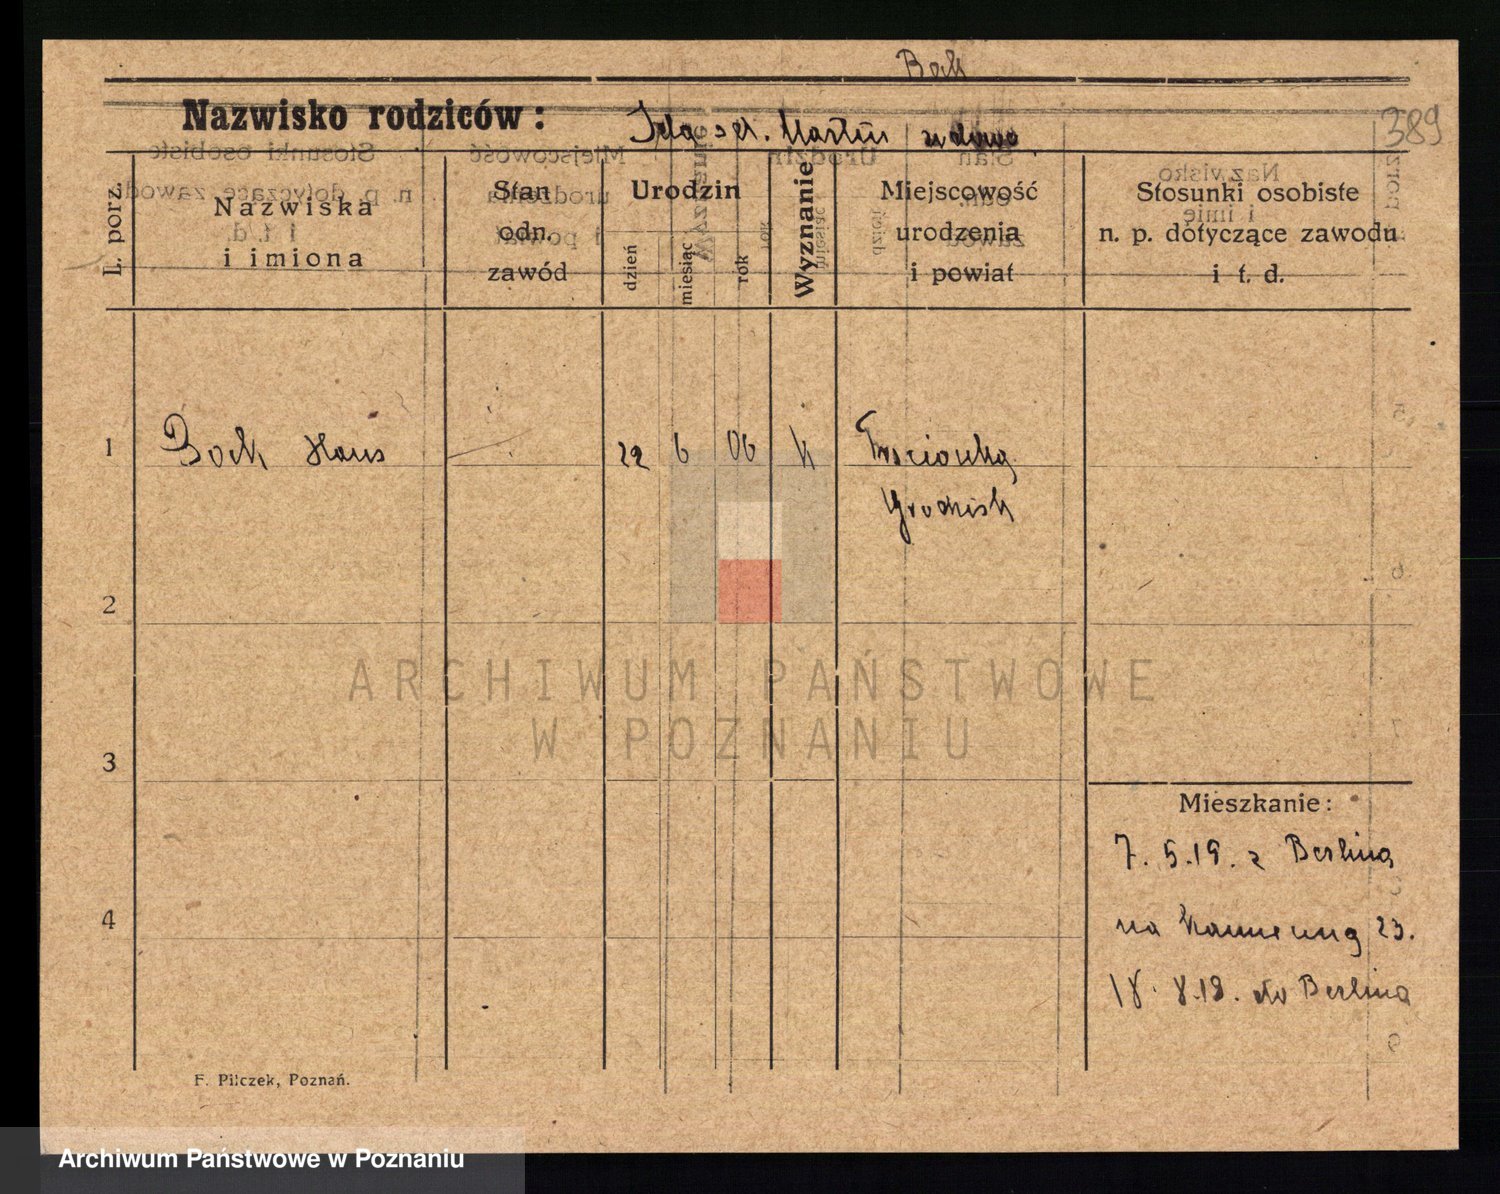 Bok
389
Nazwisko rodziców:
Ida gd. Martin wdowa
L. porz.
Nazwiska
i imiona
Stan
odn.
zawód
Urodzin
dzień
miesiąc
rok
Wyznanie
Miejscowość
urodzenia
i powiat
Stosunki osobiste
n. p. dotyczące zawodu
i t. d.
1 Bock Hans 22 6 06 k Trzcionka
Grodzisk
2
3
4
Mieszkanie:
7. 5. 19. z Berlina
na 23.
18. 8. 19. do Berlina
F. Pilczek, Poznań.
ARCHIWUM PAŃSTWOWE
W POZNANIU
Archiwum Państwowe w Poznaniu